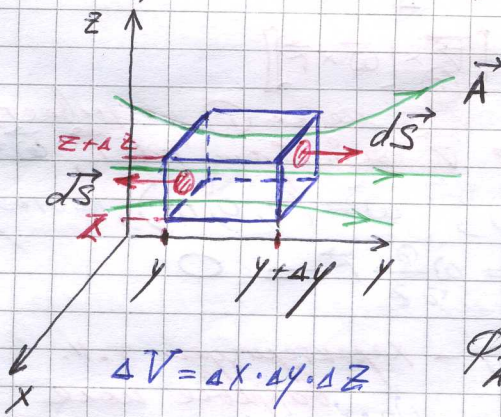 z
A⃗
z+Δz
dS⃗
dS⃗
z
y
y+Δy
y
x
ΔV = Δx·Δy·Δz
Φ